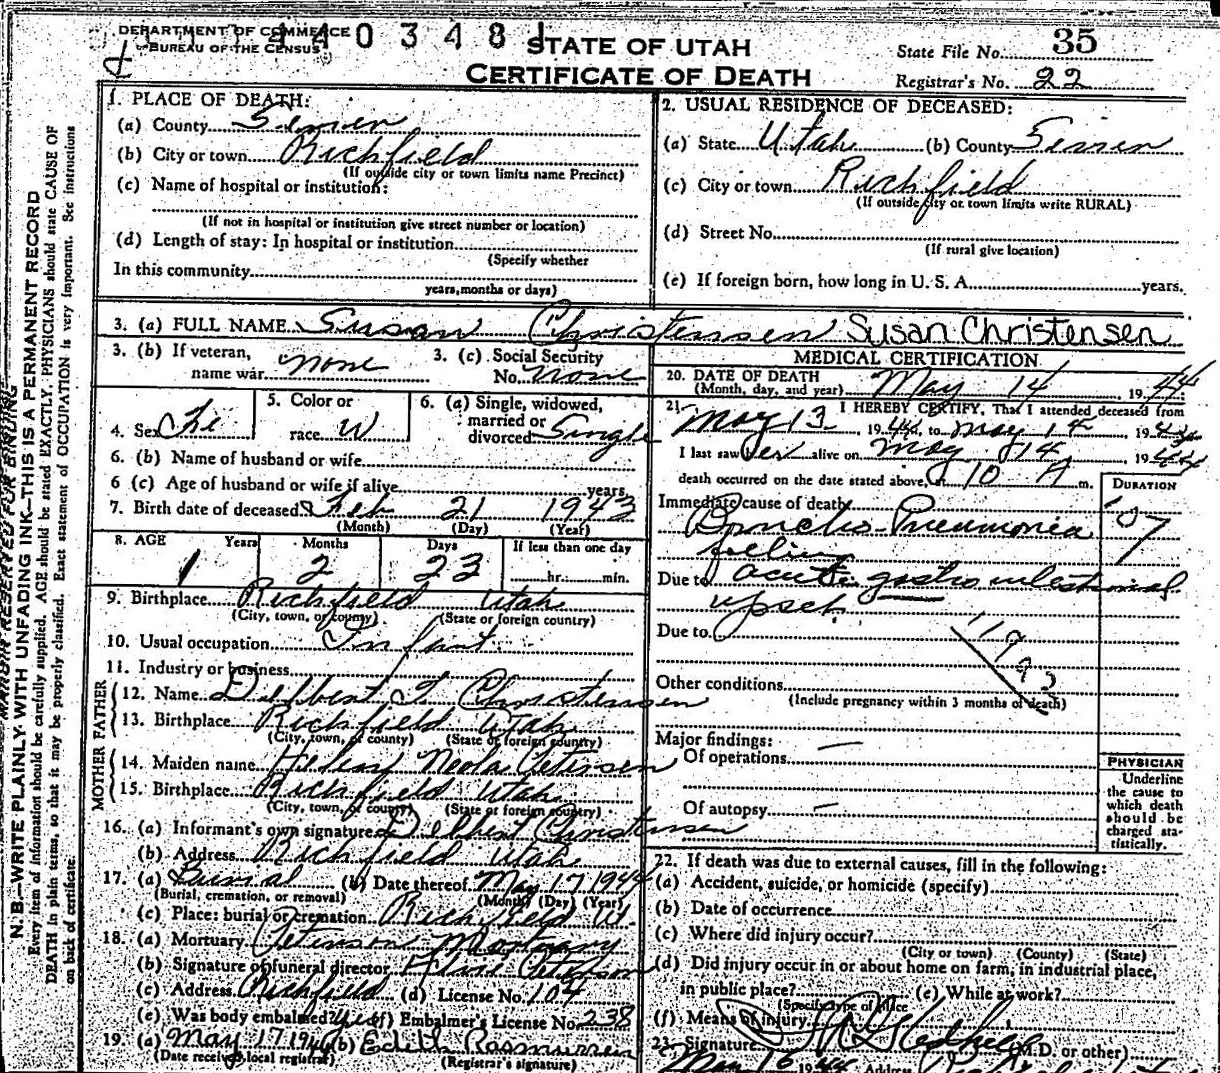 DEPARTMENT OF COMMERCE
BUREAU OF THE CENSUS
440348
STATE OF UTAH
CERTIFICATE OF DEATH
State File No. 35
Registrar's No. 22
1. PLACE OF DEATH:
(a) County Sevier
(b) City or town Richfield
(If outside city or town limits name Precinct)
(c) Name of hospital or institution:
(If not in hospital or institution give street number or location)
(d) Length of stay: In hospital or institution
(Specify whether
In this community
years, months or days)
2. USUAL RESIDENCE OF DECEASED:
(a) State Utah (b) County Sevier
(c) City or town Richfield
(If outside city or town limits write RURAL)
(d) Street No.
(If rural give location)
(e) If foreign born, how long in U. S. A. years.
3. (a) FULL NAME Susan Christensen Susan Christensen
3. (b) If veteran,
name war none
3. (c) Social Security
No. none
4. Sex Fe
5. Color or
race W
6. (a) Single, widowed,
married or
divorced Single
6. (b) Name of husband or wife
6 (c) Age of husband or wife if alive years
7. Birth date of deceased Feb 21 1943
(Month) (Day) (Year)
8. AGE Years Months Days If less than one day
1 2 23 hr. min.
9. Birthplace Richfield Utah
(City, town, or county) (State or foreign country)
10. Usual occupation Infant
11. Industry or business
FATHER
12. Name Delbert F Christensen
13. Birthplace Richfield Utah
(City, town, or county) (State or foreign country)
MOTHER
14. Maiden name Neola Petersen
15. Birthplace Richfield Utah
(City, town, or county) (State or foreign country)
16. (a) Informant's own signature Delbert Christensen
(b) Address Richfield Utah
17. (a) Burial (b) Date thereof May 17 1944
(Burial, cremation, or removal) (Month) (Day) (Year)
(c) Place: burial or cremation Richfield Ut.
18. (a) Mortuary Petersen Mortuary
(b) Signature of funeral director Petersen
(c) Address Richfield (d) License No. 104
(e) Was body embalmed? yes (f) Embalmer's License No. 238
19. (a) May 17 1944 (b) Edith Rasmussen
(Date received local registrar) (Registrar's signature)
MEDICAL CERTIFICATION
20. DATE OF DEATH
(Month, day, and year) May 14 1944
21. I HEREBY CERTIFY, That I attended deceased from
May 13 1944, to May 14 1944
I last saw her alive on May 14, 1944
death occurred on the date stated above, at 10 A m.
DURATION
Immediate cause of death
Broncho-Pneumonia
following
Due to acute gastro intestinal
upset
Due to
Other conditions
(Include pregnancy within 3 months of death)
Major findings:
Of operations
Of autopsy
PHYSICIAN
Underline
the cause to
which death
should be
charged sta-
tistically.
22. If death was due to external causes, fill in the following:
(a) Accident, suicide, or homicide (specify)
(b) Date of occurrence
(c) Where did injury occur?
(City or town) (County) (State)
(d) Did injury occur in or about home on farm, in industrial place,
in public place? (e) While at work?
(Specify type of place
(f) Means of injury
23. Signature (M.D. or other)
Address
N. B.—WRITE PLAINLY WITH UNFADING INK—THIS IS A PERMANENT RECORD
Every item of information should be carefully supplied. AGE should be stated EXACTLY. PHYSICIANS should state CAUSE OF
DEATH in plain terms, so that it may be properly classified. Exact statement of OCCUPATION is very important. See instructions
on back of certificate.
MARGIN RESERVED FOR BINDING